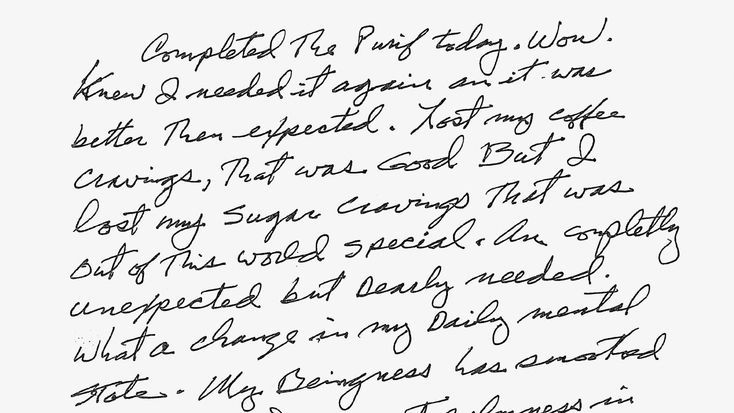 Completed The Purif today. Wow.
Knew I needed it again an it was
better Then expected. Lost my coffee
cravings, That was Good But I
lost my Sugar cravings That was
out of This world special. An completly
unexpected but Dearly needed.
What a change in my Daily mental
State. My Beingness has smoothed
in